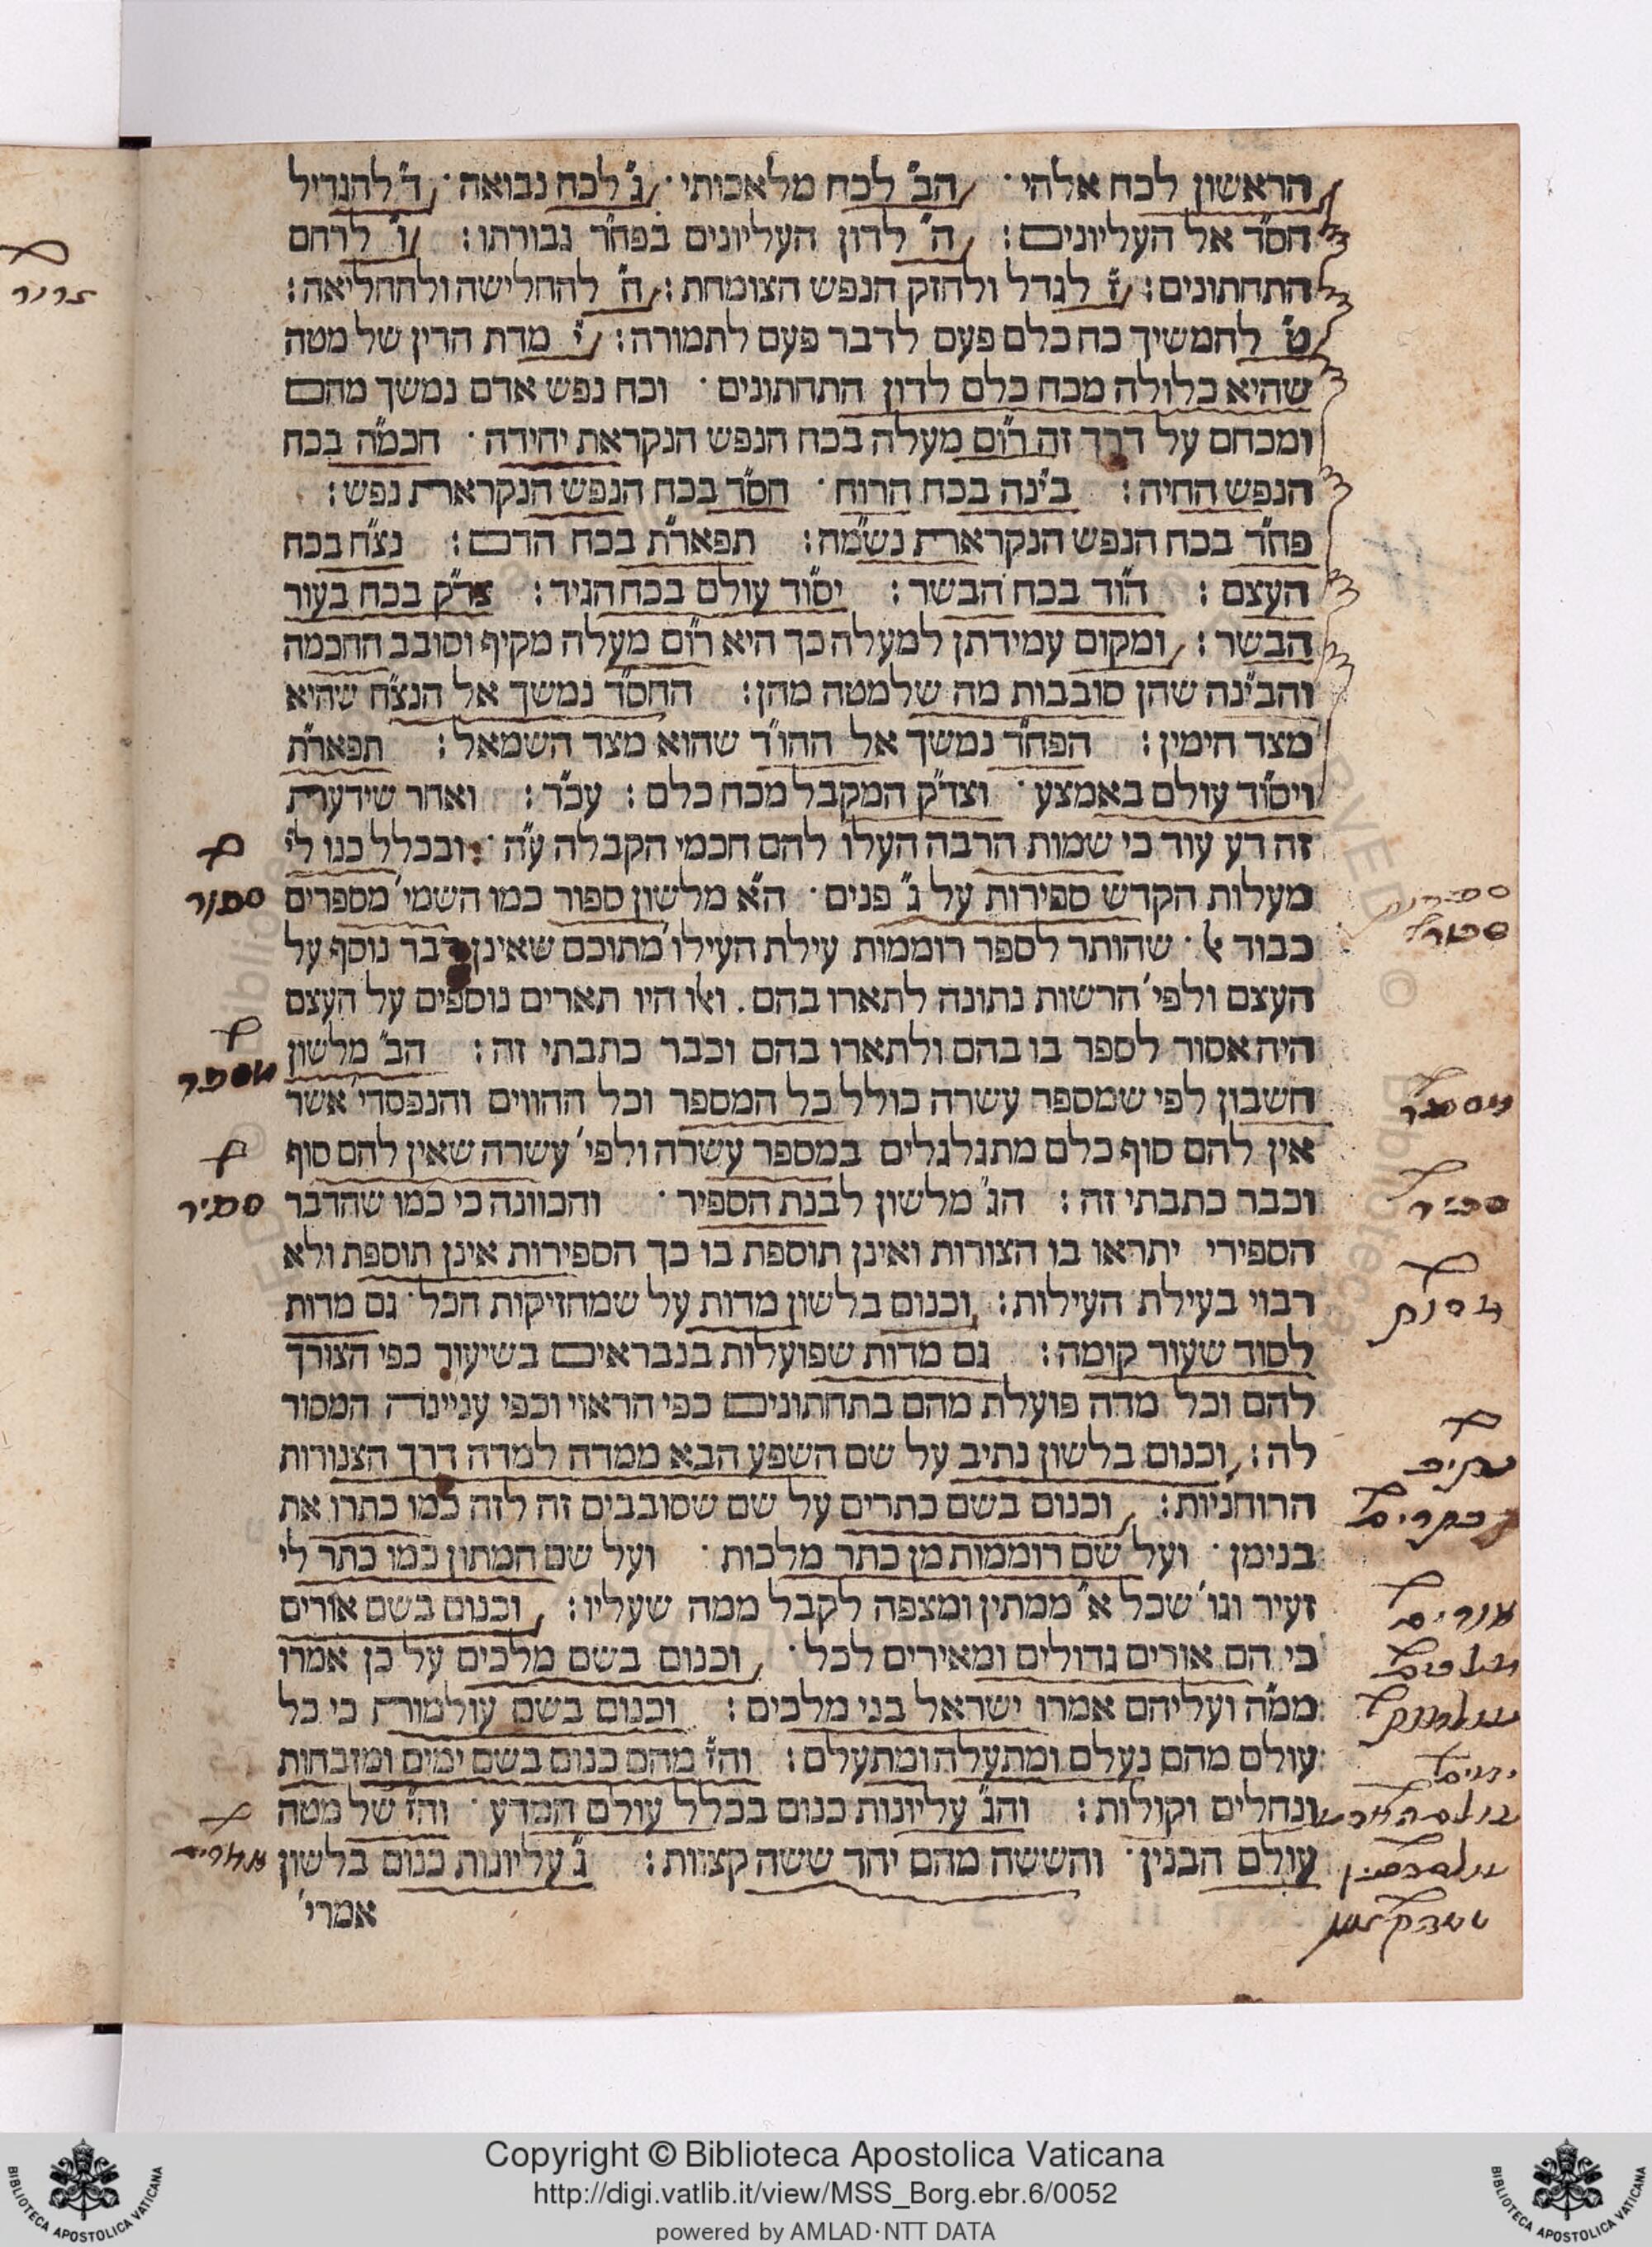 הראשון לכח אלהי · הב״ לכח מלאכותי · ג״ לכח נבואה · ד״ להגדיל
חס״ד אל העליונים : ה״ לדון העליונים בפח״ד גבורתו : ו״ לרחם
התחתונים : ז״ לגדל ולחזק הנפש הצומחת : ח״ להחלישה ולהחליאה :
ט״ להמשיך כח כלם פעם לדבר פעם לתמורה : י״ מדת הדין של מטה
שהיא כלולה מכח כלם לדון התחתונים · וכח נפש אדם נמשך מהם
ומכחם על דרך זה רו״ם מעלה בכח הנפש הנקראת יחידה · חכמ״ה בכח
הנפש החיה : בי״נה בכח הרוח · חס״ד בכח הנפש הנקראת נפש :
פח״ד בכח הנפש הנקראת נשמ״ה : תפאר״ת בכח הדם : נצ״ח בכח
העצם : הו״ד בכח הבשר : יסו״ד עולם בכח הגיד : צד״ק בכח בעור
הבשר : ומקום עמידתן למעלה כך היא רו״ם מעלה מקיף וסובב החכמה
והבי״נה שהן סובבות מה שלמטה מהן : החס״ד נמשך אל הנצ״ח שהיא
מצד הימין : הפח״ד נמשך אל ההו״ד שהוא מצד השמאל : תפאר״ת
ויסו״ד עולם באמצע · וצד״ק המקבל מכח כלם : עכ״ד : ואחר שידעת
זה דע עוד כי שמות הרבה העלו להם חכמי הקבלה ע״ה : ובכלל כנו לי״
מעלות הקדש ספירות על ג״ פנים · הא״ מלשון ספור כמו השמי׳ מספרים
כבוד אל · שהותר לספר רוממות עילת העילו׳ מתוכם שאינן דבר נוסף על
העצם ולפי׳ הרשות נתונה לתארו בהם . ואלו היו תארים נוספים על העצם
היה אסור לספר בו בהם ולתארו בהם וכבר כתבתי זה : הב״ מלשון
חשבון לפי שמספר עשרה כולל כל המספר וכל ההווים והנפסדי׳ אשר
אין להם סוף כלם מתגלגלים במספר עשרה ולפי׳ עשרה שאין להם סוף
וכבר כתבתי זה : הג״ מלשון לבנת הספיר · והכוונה כי כמו שהדבר
הספירי יתראו בו הצורות ואינן תוספת בו כך הספירות אינן תוספת ולא
רבוי בעילת העילות : וכנום בלשון מדות על שמחזיקות הכל · גם מדות
לסוד שעור קומה : גם מדות שפועלות בנבראים בשיעור כפי הצורך
להם וכל מדה פועלת מהם בתחתונים כפי הראוי וכפי עניינה המסור
לה : וכנום בלשון נתיב על שם השפע הבא ממדה למדה דרך הצנורות
הרוחניות : וכנום בשם כתרים על שם שסובבים זה לזה כמו כתרו את
בנימן · ועל שם רוממות מן כתר מלכות · ועל שם המתון כמו כתר לי
זעיר וגו׳ שכל א״ ממתין ומצפה לקבל ממה שעליו : וכנום בשם אורים
כי הם אורים גדולים ומאירים לכל · וכנום בשם מלכים על כן אמרו
ממ״ה ועליהם אמרו ישראל בני מלכים : וכנום בשם עולמות כי כל
עולם מהם נעלם ומתעלה ומתעלם : והז״ מהם כנום בשם ימים ומזבחות
ונחלים וקולות : והג״ עליונות כנום בכלל עולם המדע · והז״ של מטה
עולם הבנין · והששה מהם יחד ששה קצוות : ג״ עליונות כנום בלשון
אמרי׳
ספור
מספר
ספיר
נתיב
כתרים
אורים
מלכים
Copyright © Biblioteca Apostolica Vaticana
http://digi.vatlib.it/view/MSS_Borg.ebr.6/0052
powered by AMLAD·NTT DATA
BIBLIOTECA APOSTOLICA VATICANA
BIBLIOTECA APOSTOLICA VATICANA